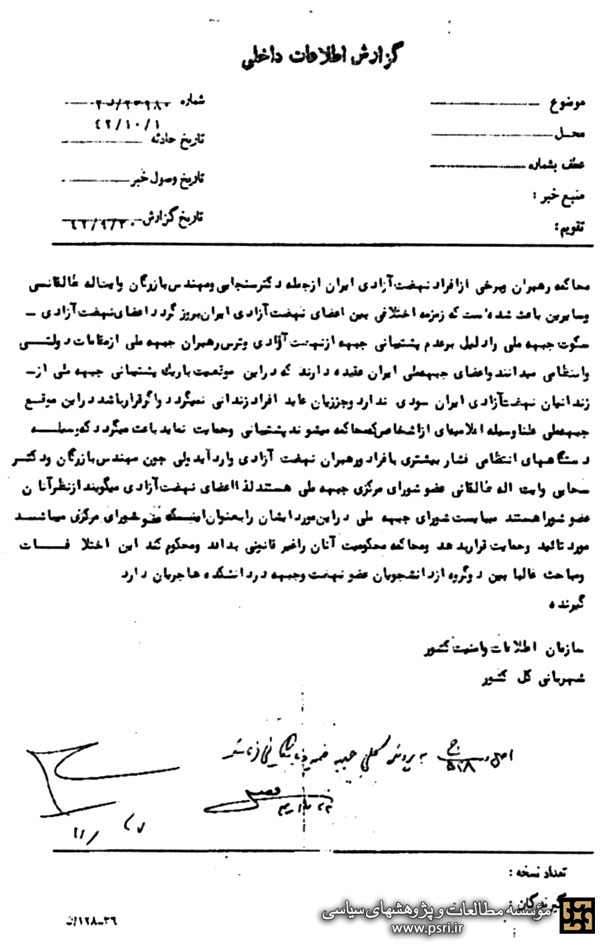 گزارش اطلاعات داخلی
موضوع
محل
عطف بشماره
منبع خبر :
تقویم:
شماره
۴۲/۱۰/۱
تاریخ حادثه
تاریخ وصول خبر
تاریخ گزارش ۴۲/۹/۳۰
محاکمه رهبران وبرخی ازافراد نهضت آزادی ایران ازجمله دکترسنجابی ومهندس بازرگان وایتاله طالقانسی
وسایرین باعث شده است که زمزمه اختلافی بین اعضای نهضت آزادی ایران بروز گردد اعضای نهضت آزادی -
سکوت جبهه ملی را دلیل برعدم پشتیبانی جبهه ازنهضت آزادی وترس رهبران جبهه ملی ازمقامات دولتسی
وانتظامی میدانند واعضای جبهه ملی ایران عقیده دارند که دراین موقعیت باریک پشتیبانی جبهه ملی از-
زندانیان نهضت آزادی ایران سودی ندارد وجززیان عاید افراد زندانی نمیگردد واگرقرارباشد دراین موقع
جبهه ملی علنا وسیله اعلامیه ای ازاشخاص که محاکمه میشوند پشتیبانی وحمایت نماید باعث میگردد که بوسیلسه
دستگاههای انتظامی فشار بیشتری بافراد ورهبران نهضت آزادی وارد آید ولی چون مهندس بازرگان ودکتر
سحابی وایت اله طالقانی عضو شورای مرکزی جبهه ملی هستند لذا اعضای نهضت آزادی میگویند ازنظر آنان
عضو شورا هستند میبایست شورای جبهه ملی دراین مورد ایشان را بعنوان اینسکه عضو شورای مرکزی میباشسند
مورد تائید وحمایت قراردهد ومحاکمه محکومیت آنان راغیر قانونی بداند ومحکوم کند این اختلافسات
ومباحث غالبا بین دوگروه ازدانشجویان عضو نهضت وجبهه دردانشکده ها جریان دارد
گیرنده
سازمان اطلاعات وامنیت کشور
شهربانی کل کشور
تعداد نسخه :
گیرندگان :
۳۶-۱۲۸/ن
مؤسسه مطالعات و پژوهشهای سیاسی
www.psri.ir